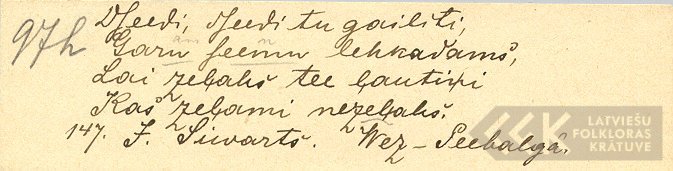 974
Dseedi, dseedi tu gailiti,
Garu seemu lehkadams,
Lai zeļahs tee ļautiņi
Kas zeļami nezeļahs.
147. J. Siwarts. Wez-Peebalgā.
LATVIEŠU
FOLKLORAS
KRĀTUVE